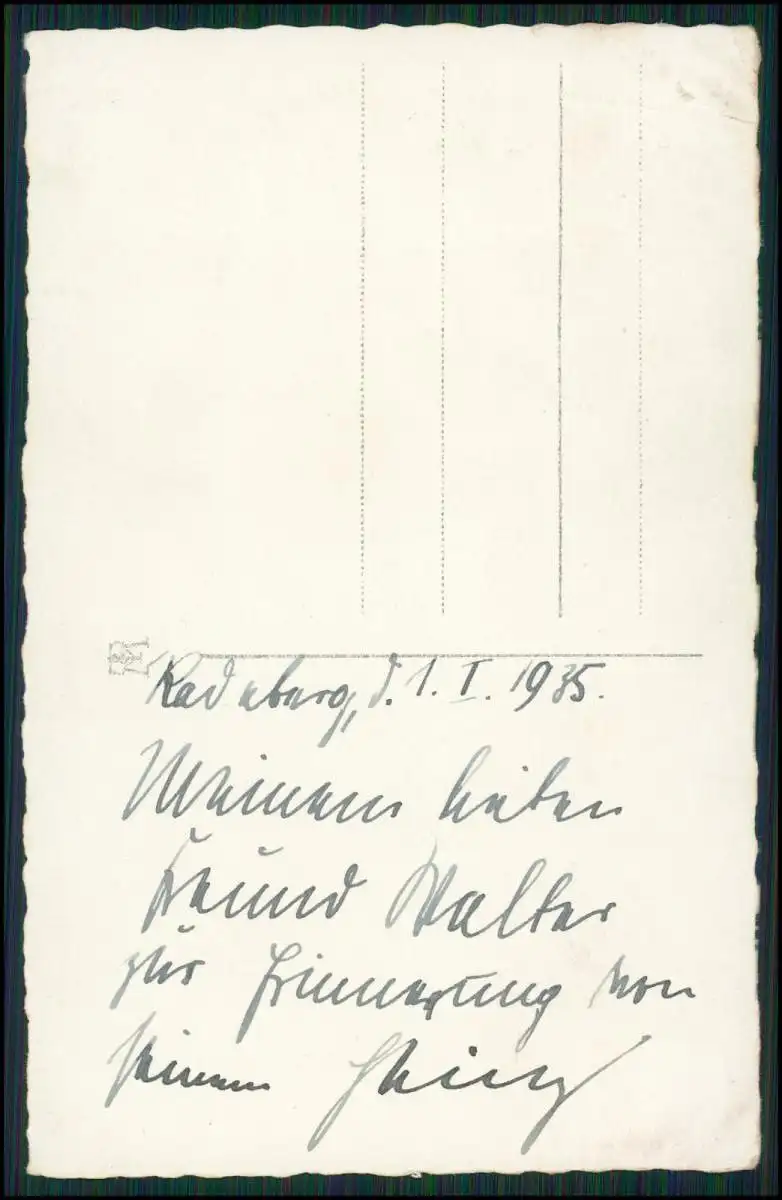 Radeberg, d. 1. I. 1935.
Meinem lieben
Freund Walter
zur Erinnerung von
seinem Heinz